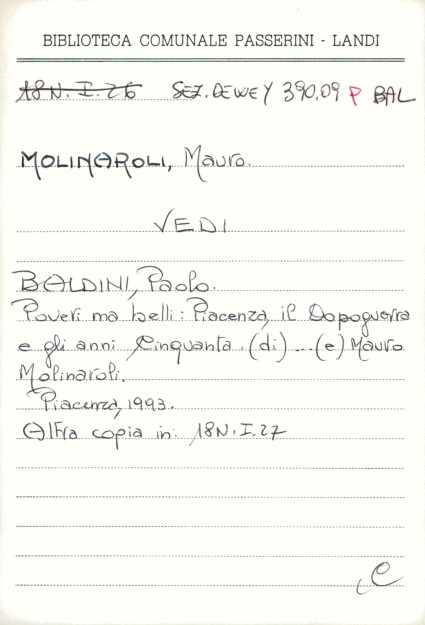 BIBLIOTECA COMUNALE PASSERINI - LANDI
18N.I.26 SEZ. DEWEY 390.09 P BAL
MOLINAROLI, Mauro.
VEDI
BALDINI, Paolo.
Poveri ma belli: Piacenza, il Dopoguerra
e gli anni Cinquanta. (di)...(e) Mauro
Molinaroli.
Piacenza, 1993.
Altra copia in: 18N.I.27